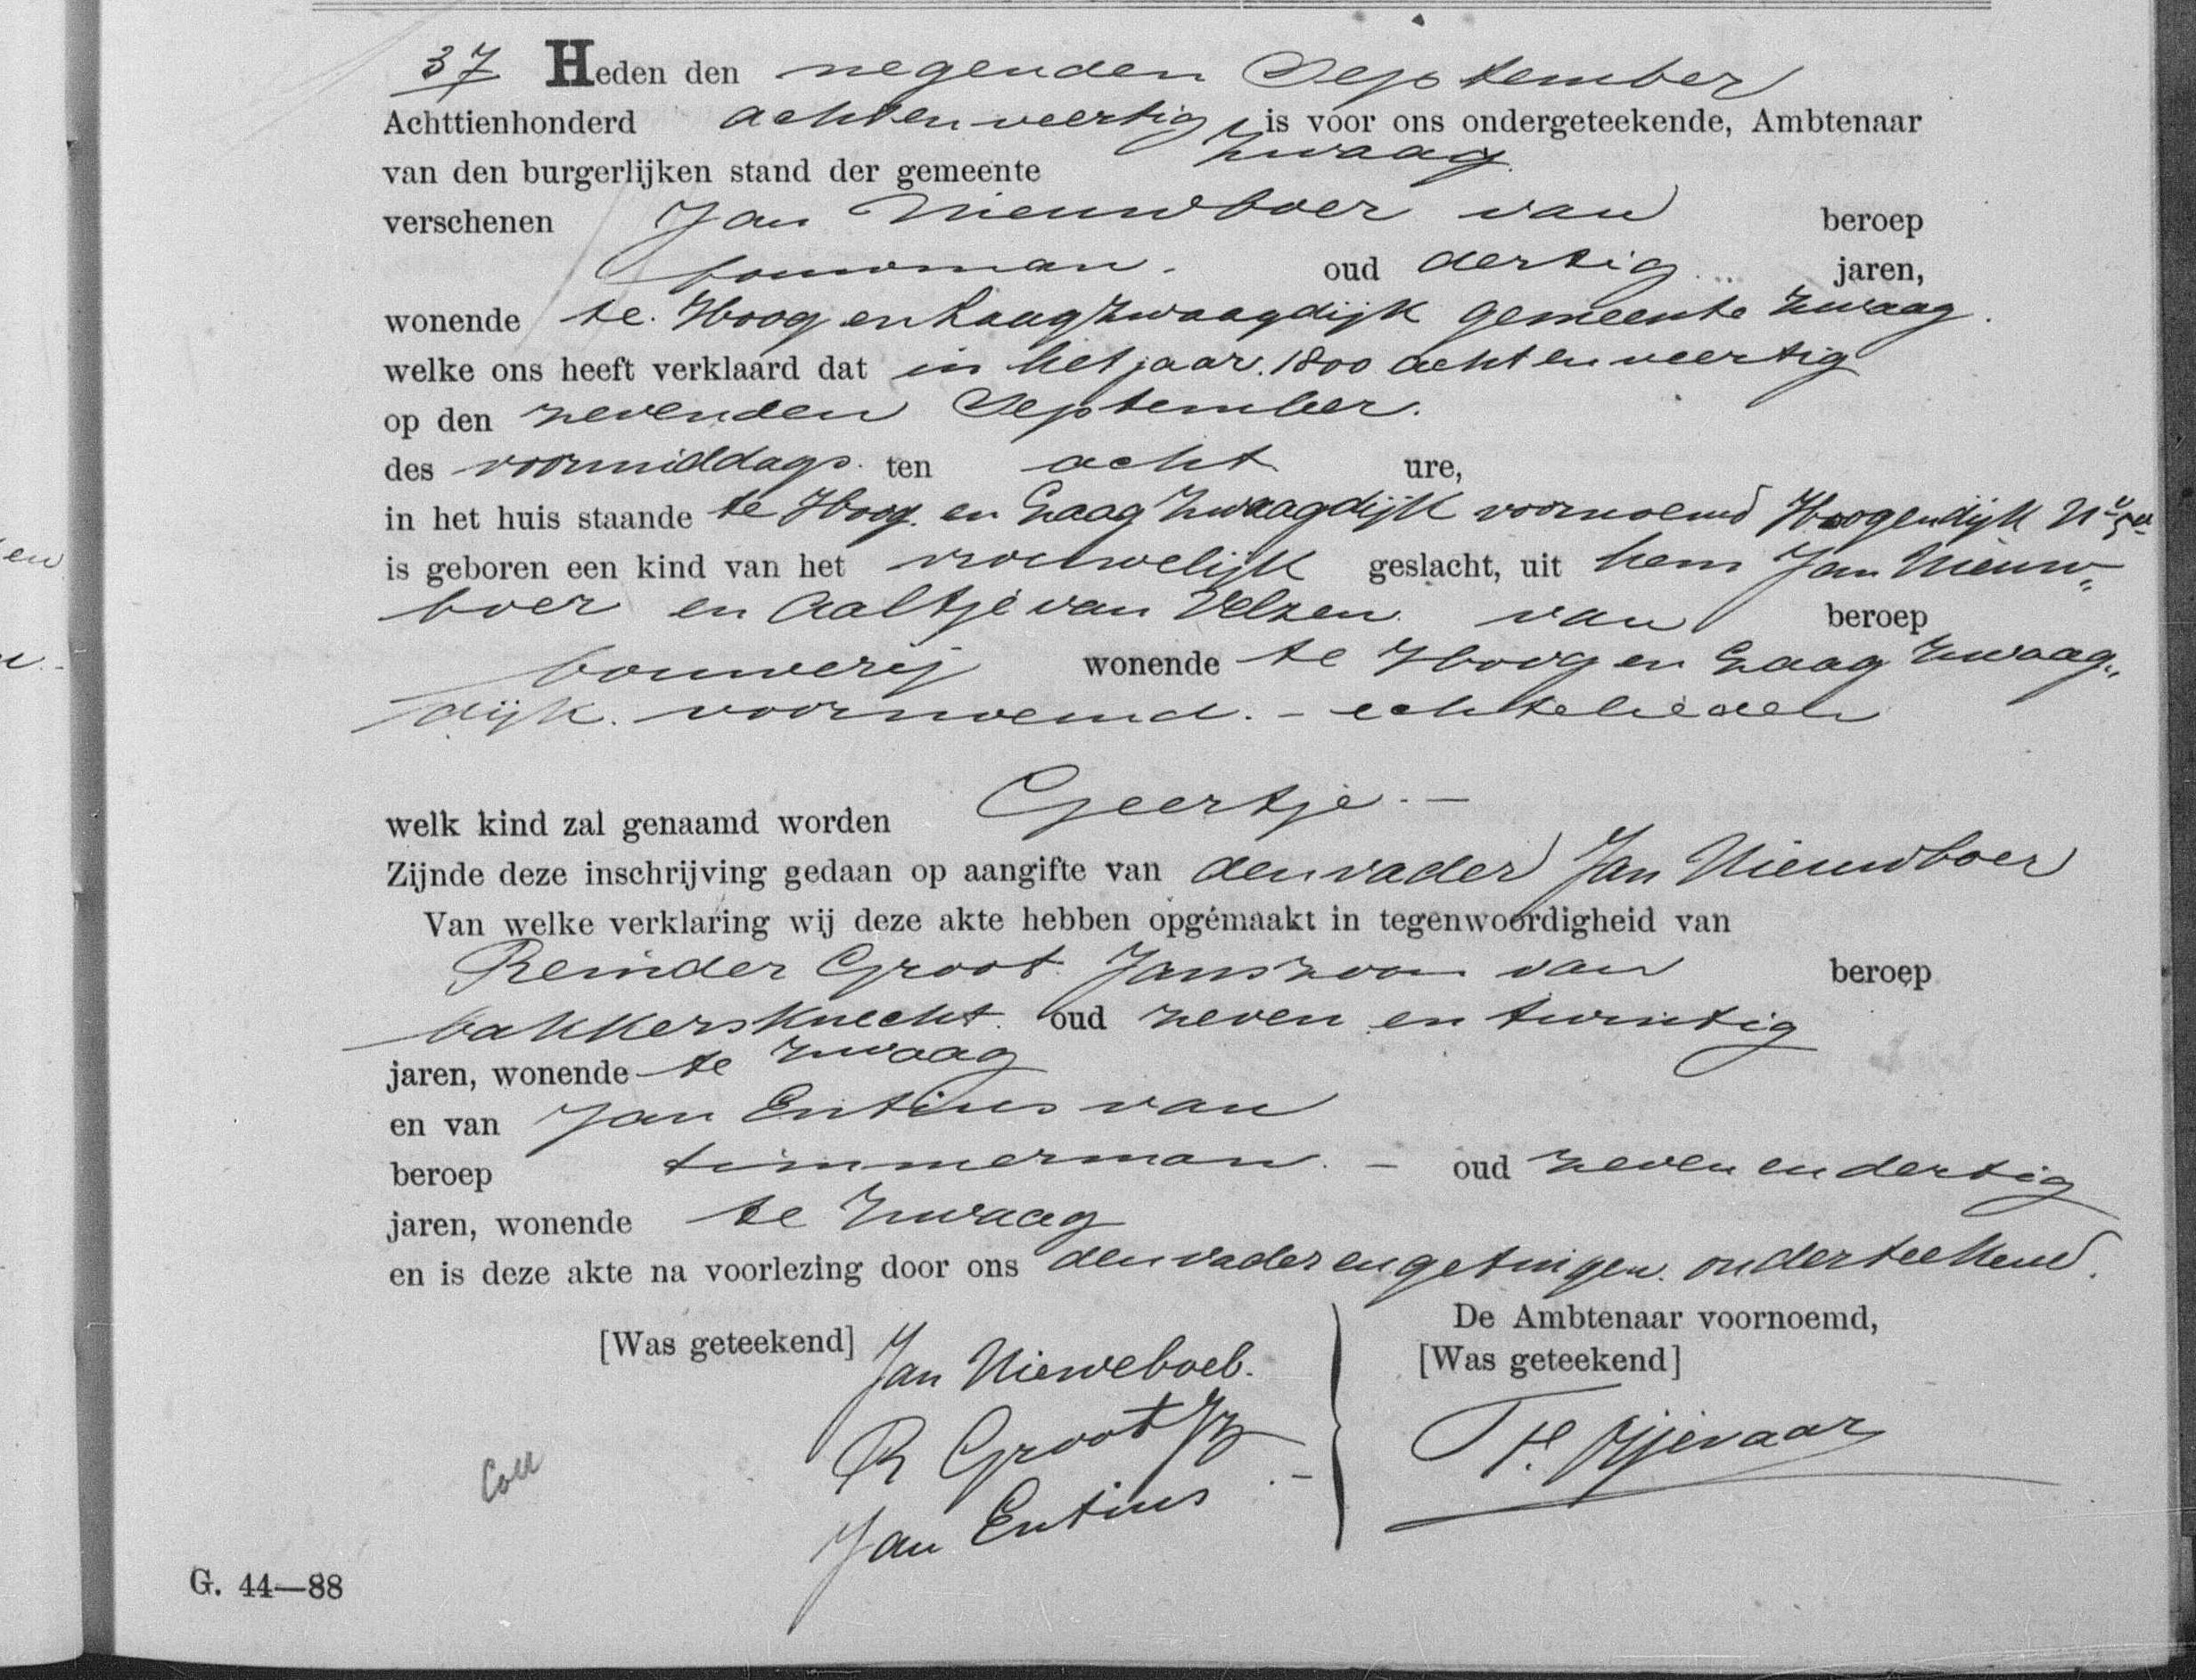 37 Heden den negenden September
Achttienhonderd achtenveertig, is voor ons ondergeteekende, Ambtenaar
van den burgerlijken stand der gemeente Zwaag
verschenen Jan Nieuwboer van beroep
bouwman. oud dertig jaren,
wonende te Hoog en Laag Zwaagdijk gemeente Zwaag.
welke ons heeft verklaard dat in het jaar 1800 acht en veertig
op den zevenden September.
des voormiddags ten acht ure,
in het huis staande te Hoog en Laag Zwaagdijk voornoemd Hoogendijk
is geboren een kind van het vrouwelijk geslacht, uit hem Jan Nieuw-
boer en Aaltje van Velzen van beroep
bouwerij wonende te Hoog en Laag Zwaag-
dijk voornoemd. - echtelieden
welk kind zal genaamd worden Geertje. -
Zijnde deze inschrijving gedaan op aangifte van den vader Jan Nieuwboer
Van welke verklaring wij deze akte hebben opgemaakt in tegenwoordigheid van
Reinder Groot Janszoon van beroep
bakkersknecht oud zeven en twintig
jaren, wonende te Zwaag
en van Jan Entius van
beroep timmerman. - oud zeven en dertig
jaren, wonende te Zwaag
en is deze akte na voorlezing door ons den vader en getuigen onderteekend.
De Ambtenaar voornoemd,
[Was geteekend] Jan Nieweboeb. [Was geteekend]
R Groot Jz
Jan Entius
Coll
G. 44—88